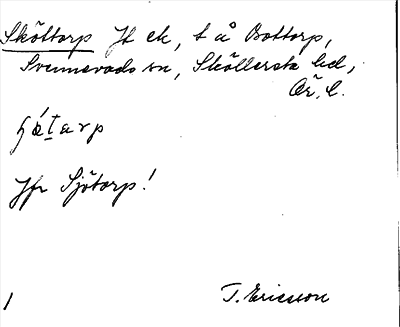 Sköttorp Jt ek, t å Bottorp,
Svennevads sn, Sköllersta hd,
Ör. l.
Jfr Sjötorp!
T. Ericsson